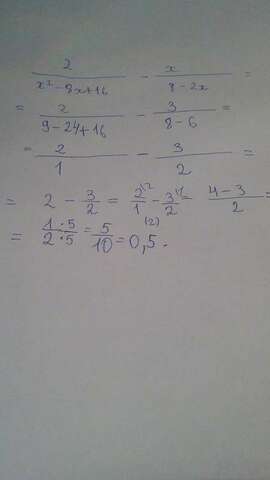 2/(x²-8x+16) - x/(8-2x) =
= 2/(9-24+16) - 3/(8-6) =
= 2/1 - 3/2 =
= 2 - 3/2 = 2\2/1 - 3\1/2 = (4-3)/2
= 1·5/2·5 = 5/10 (2) = 0,5.